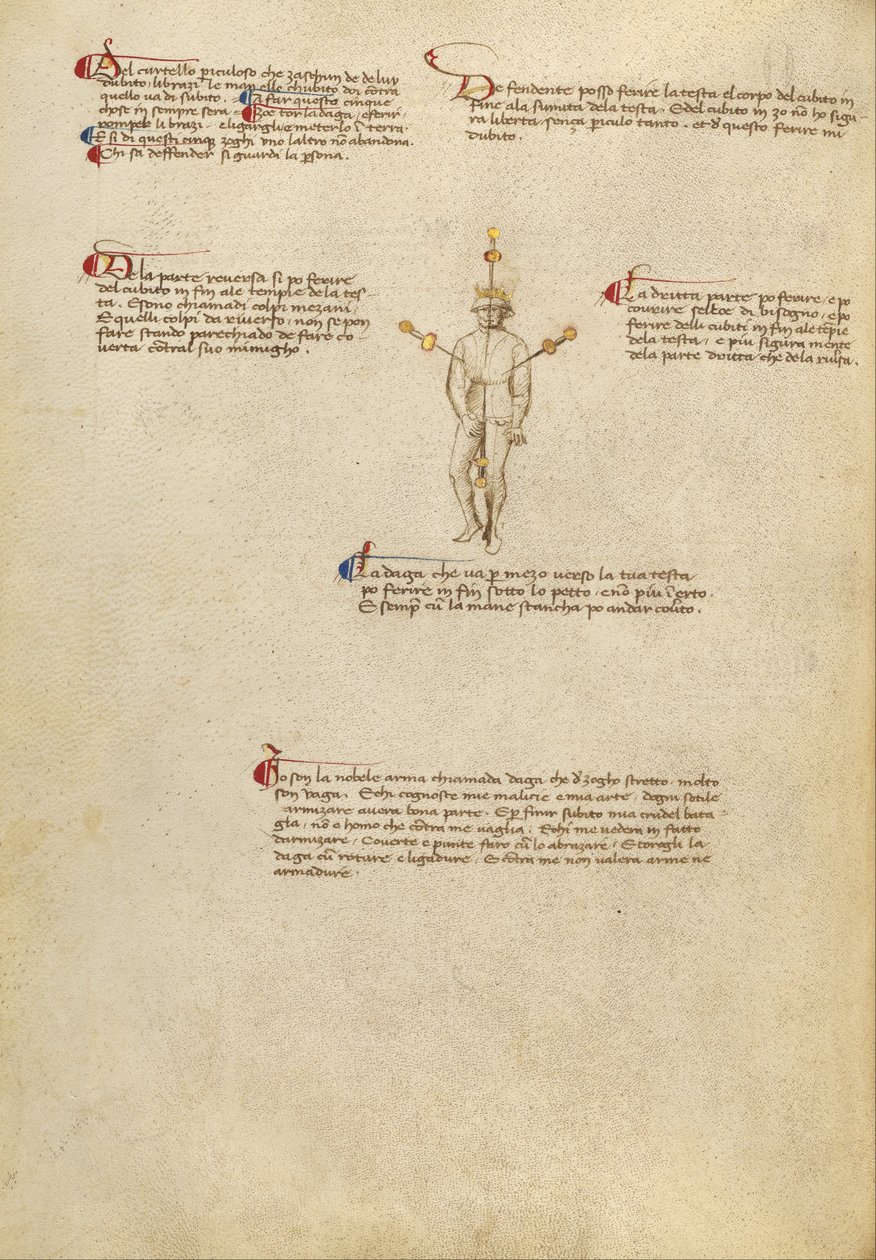 Del curtello piculoso che zaschun de de luy
dubito, li brazi, le man, ello chubito doi cōtra
quello va di subito. A far questo cinque
chose in sempre sera. Zoe tor la daga, e ferir
rompere li brazi e ligargli, e meterlo ī terra.
E si di questi cinq̄ zoghi uno laltro nō abandona.
Chi sa deffender si guardi la p̱sona.
De fendente posso ferire la testa el corpo del cubito in
fine ala sumita dela testa. E del cubito in zo nō ho sigu-
ra liberta senza periculo tanto. et d' questo ferire mi
dubito.
De la parte reversa si po ferire
del cubito in fin ale tempie dela tes-
ta. E sono chiamadi colpi mezani,
E quelli colpi da riverso, non se pon
fare stando parechiado de fare co-
verta cōtral suo inimigho.
La dritta parte po ferire, e po
courire seltoe di bisogno, e po
ferire delli cubiti in fin ale tēpie
dela testa, e più sigura mente
dela parte dritta che dela rūsa.
La daga che va p̱ mezo verso la tua testa
po ferire in fin sotto lo petto, e nō più ī erto.
E semp̱ cū la mane stancha po andar coūto.
Io son la nobele arma chiamada daga che d' zogho stretto molto
son vaga. E chi cognosce mie malicie e mia arte, dogni sotile
armizare avera bona parte. E p̱ finir subito mia crudel bata-
glia, nō e homo che cōtra me vaglia. E chi me vedera in fatto
darmizare, Coverte e punte faro cū lo abrazare, E torogli la
daga cū roture e ligadure, E cōtra me non valera arme ne
armadure.